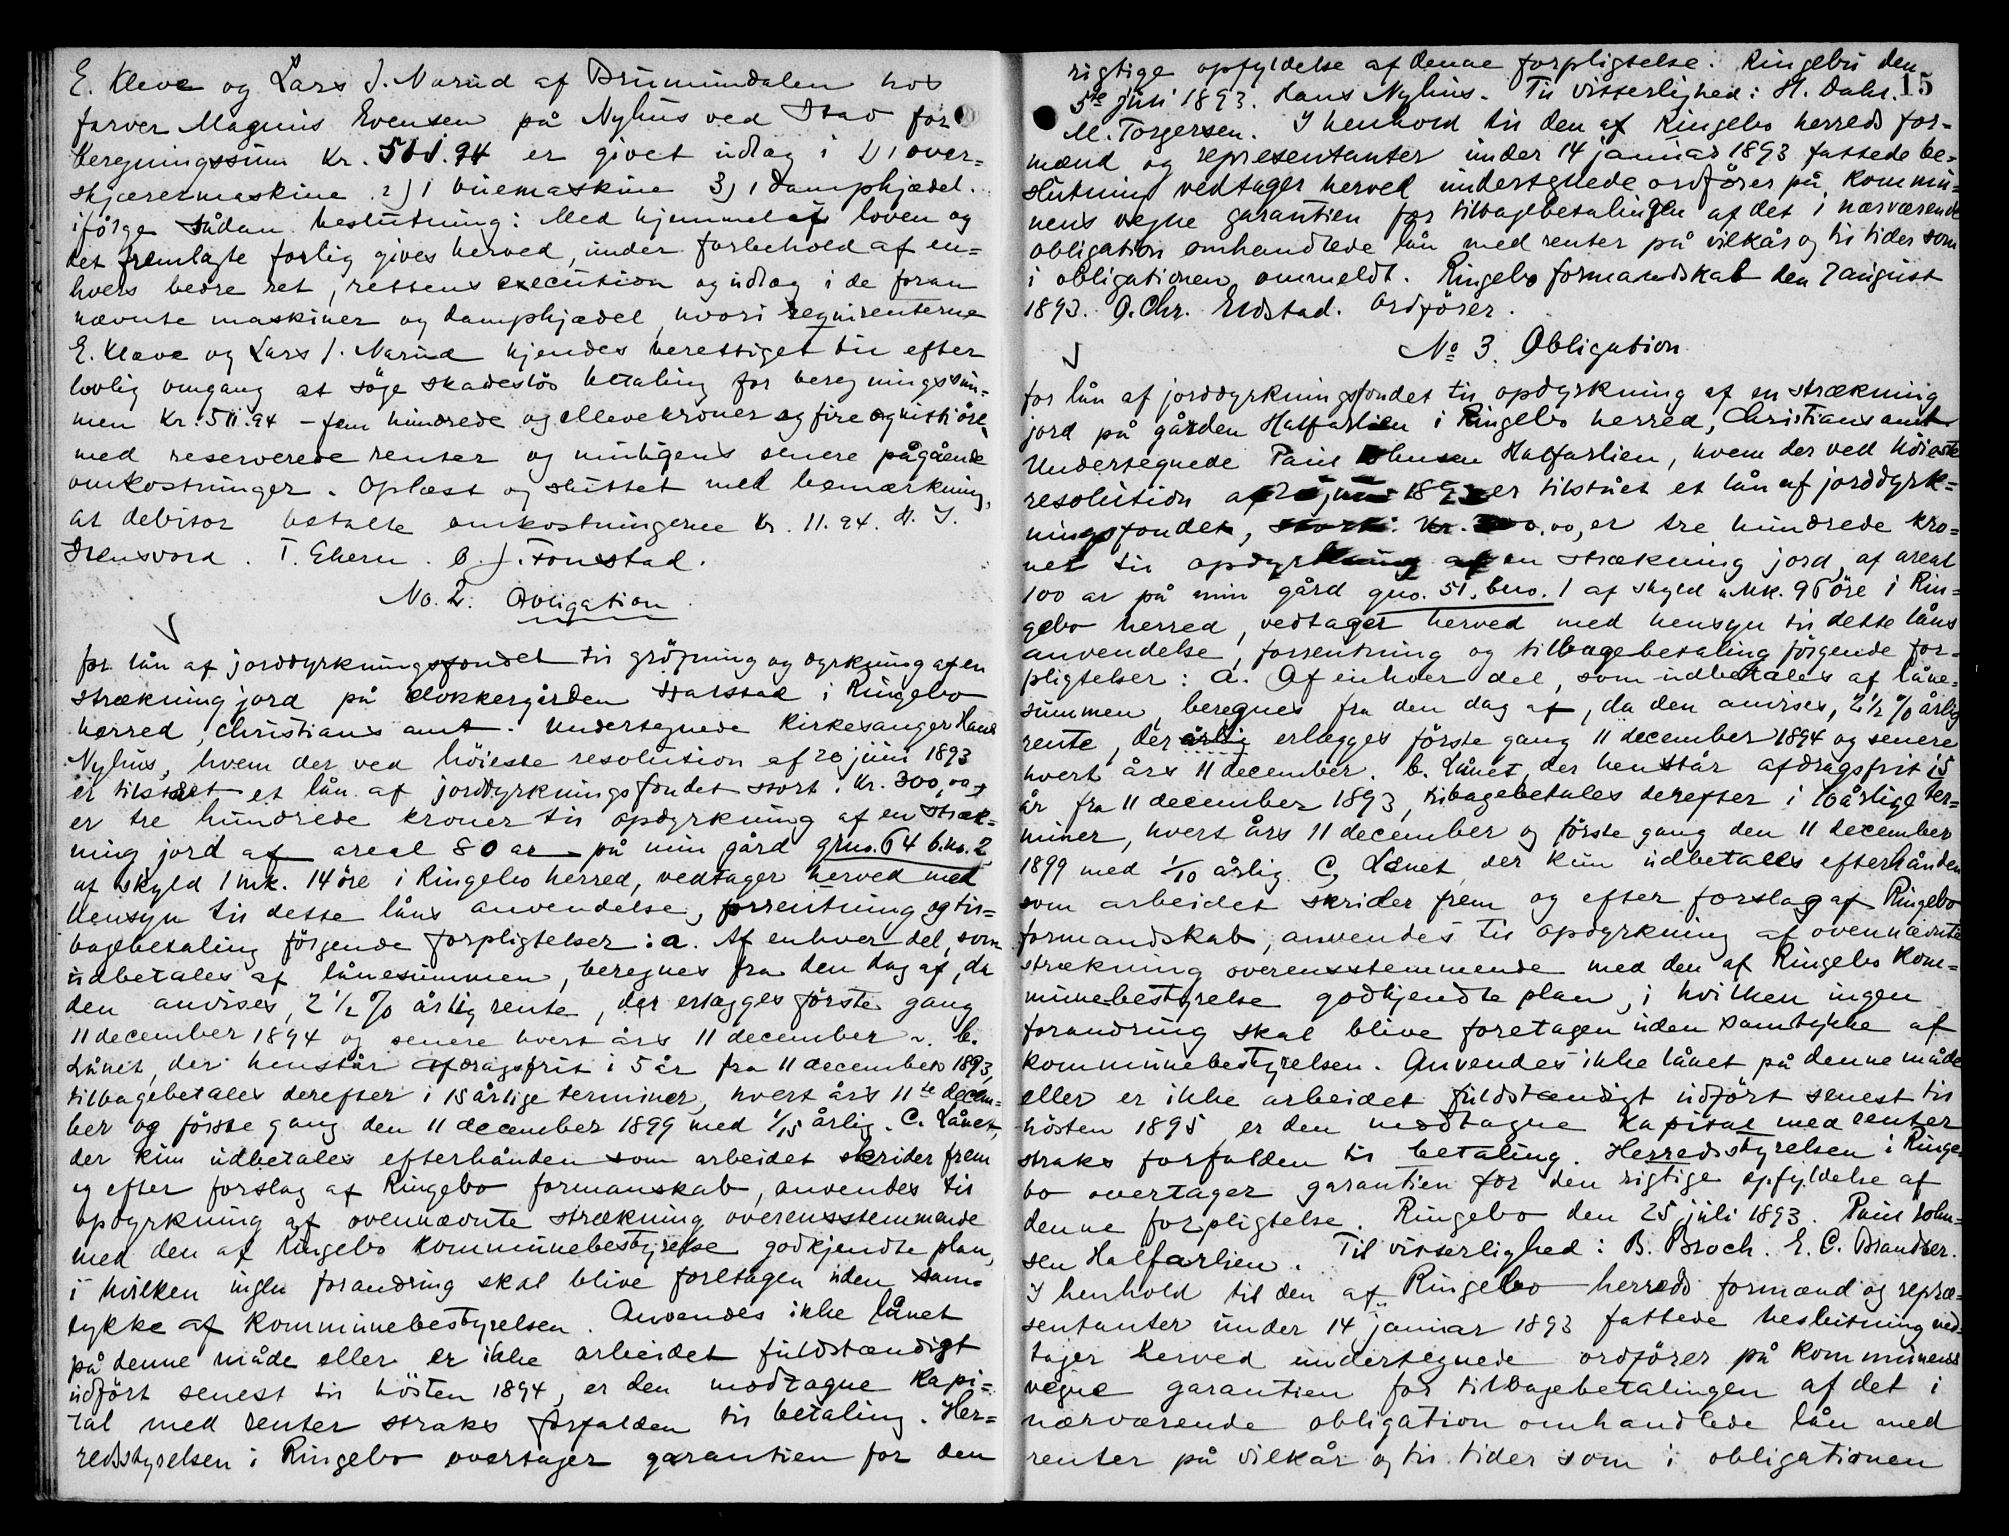 E. Kleve og Lars J. Narud af Brumundalen hos
farver Magnus Evensen på Nyhus ved Stav for
beregningssum Kr. 511.94 er givet udlæg i 1) 1 over-
skjærermaskine 2) 1 ruemaskine 3) 1 dampkjædel.
ifölge sådan beslutning: Med hjemmel af loven og
det fremlagte forlig gives herved, under forbehold af en-
hvers bedre ret, rettens execution og udlæg i de foran
nævnte maskiner og dampkjædel, hvori reqvirenterne
E. Kleve og Lars J. Narud kjendes berettiget til efter
lovlig omgang at söge skadeslös betaling for beregningssum-
men Kr. 511.94 - fem hundrede og elleve kroner og fire og nitti öre,
med reserverede renter og muligens senere pågående
omkostninger. Oplæst og sluttet med bemærkning,
at debitor betalte omkostningerne Kr. 11.94. H. J.
Stensvord. T. Ekern. O. J. Fonstad.
No. 2. Obligation
for lån af jorddyrkningsfondet til gröftning og dyrkning af en
strækning jord på klokkergården Stalstad i Ringebo
herred, Christians amt. Undertegnede kirkesanger Hans
Nyhus, hvem der ved höieste resolution af 20 juni 1893
er tilstået et lån af jorddyrkningsfondet stort: Kr. 300,00,
er tre hundrede kroner til opdyrkning af en stræk-
ning jord af areal 80 ar på min gård grno. 64 b.no. 2
af skyld 1 mk. 14 öre i Ringebo herred, vedtager herved med
hensyn til dette låns anvendelse, forrentning og til-
bagebetaling fölgende forpligtelser: a. Af enhver del, som
udbetales af lånesummen, beregnes fra den dag af, da
den anvises, 2 1/2 % årlig rente, der erlægges förste gang
11 december 1894 og senere hvert års 11 december. b.
Lånet, der henstår afdragsfrit i 5 år fra 11 december 1893,
tilbagebetales derefter i 15 årlige terminer, hvert års 11te decem-
ber og förste gang den 11 december 1899 med 1/15 årlig. C. Lånet,
der kun udbetales efterhånden som arbeidet skrider frem
og efter forslag af Ringebo formanskab, anvendes til
opdyrkning af ovennævnte strækning overensstemmende
med den af Ringebo kommunebestyrelse godkjendte plan,
i hvilken ingen forandring skal blive foretagen uden sam-
tykke af kommunebestyrelsen. Anvendes ikke lånet
på denne måde eller er ikke arbeidet fuldstændigt
udfört senest til hösten 1894, er den modtagne kapi-
tal med renter straks forfalden til betaling. Her-
redsstyrelsen i Ringebo overtager garantien for den
15
rigtige opfyldelse af denne forpligtelse. Ringebu den
5te juli 1893. Hans Nyhus. Til vitterlighed: H. Dahl.
M. Torgersen. I henhold til den af Ringebo herreds for-
mænd og representanter under 14 januar 1893 fattede be-
slutning vedtager herved undertegnede ordförer på kommu-
nens vegne garantien for tilbagebetalingen af det i nærværende
obligation omhandlede lån med renter på vilkår og til tider som
i obligationen ommeldt. Ringebo formandskab den 7 august
1893. O. Chr. Eidstad. Ordförer.
No 3. Obligation
for lån af jorddyrkningsfondet til opdyrkning af en strækning
jord på gården Halfarlien i Ringebo herred, Christians amt
Undertegnede Paul Johnsen Halfarlien, hvem der ved höieste
resolution af juni 1893 er tilstået et lån af jorddyrk-
ningsfondet, stort: Kr. 300.00, er tre hundrede kro-
ner til opdyrkning af en strækning jord, af areal
100 ar på min gård gno. 51. bno. 1 af skyld Mk. 96 öre i Rin-
gebo herred, vedtager herved med hensyn til dette låns
anvendelse, forrentning og tilbagebetaling fölgende for-
pligtelser: a. Af enhver del, som udbetales af låne-
summen, beregnes fra den dag af, da den anvises, 2 1/2 % årlig
rente, der årlig erlægges förste gang 11 december 1894 og senere
hvert års 11 december. b. Lånet, der henstår afdragsfrit i 5
år fra 11 december 1893, tilbagebetales derefter i 10 årlige ter-
miner, hvert års 11 december og förste gang den 11 december
1899 med 1/10 årlig. C, Lånet, der kun udbetales efterhånden
som arbeidet skrider frem og efter forslag af Ringebo
formandskab, anvendes til opdyrkning af ovennævnte
strækning overensstemmende med den af Ringebo kom-
munebestyrelse godkjendte plan, i hvilken ingen
forandring skal blive foretagen uden samtykke af
kommunebestyrelsen. Anvendes ikke lånet på denne måde
eller er ikke arbeidet fuldstændigt udfört senest til
hösten 1895, er den modtagne kapital med renter
straks forfalden til betaling. Herredsstyrelsen i Ringe-
bo overtager garantien for den rigtige opfyldelse af
denne forpligtelse. Ringebo den 25 juli 1893. Paul John-
sen Halfarlien. Til vitterlighed: B. Broch. E. C. Brandser.
I henhold til den af Ringebo herreds formænd og repræ-
sentanter under 14 januar 1893 fattede beslutning ved-
tager herved undertegnede ordförer på kommunens
vegne garantien for tilbagebetalingen af det i
nærværende obligation omhandlede lån med
renter på vilkår og til tider som i obligationen